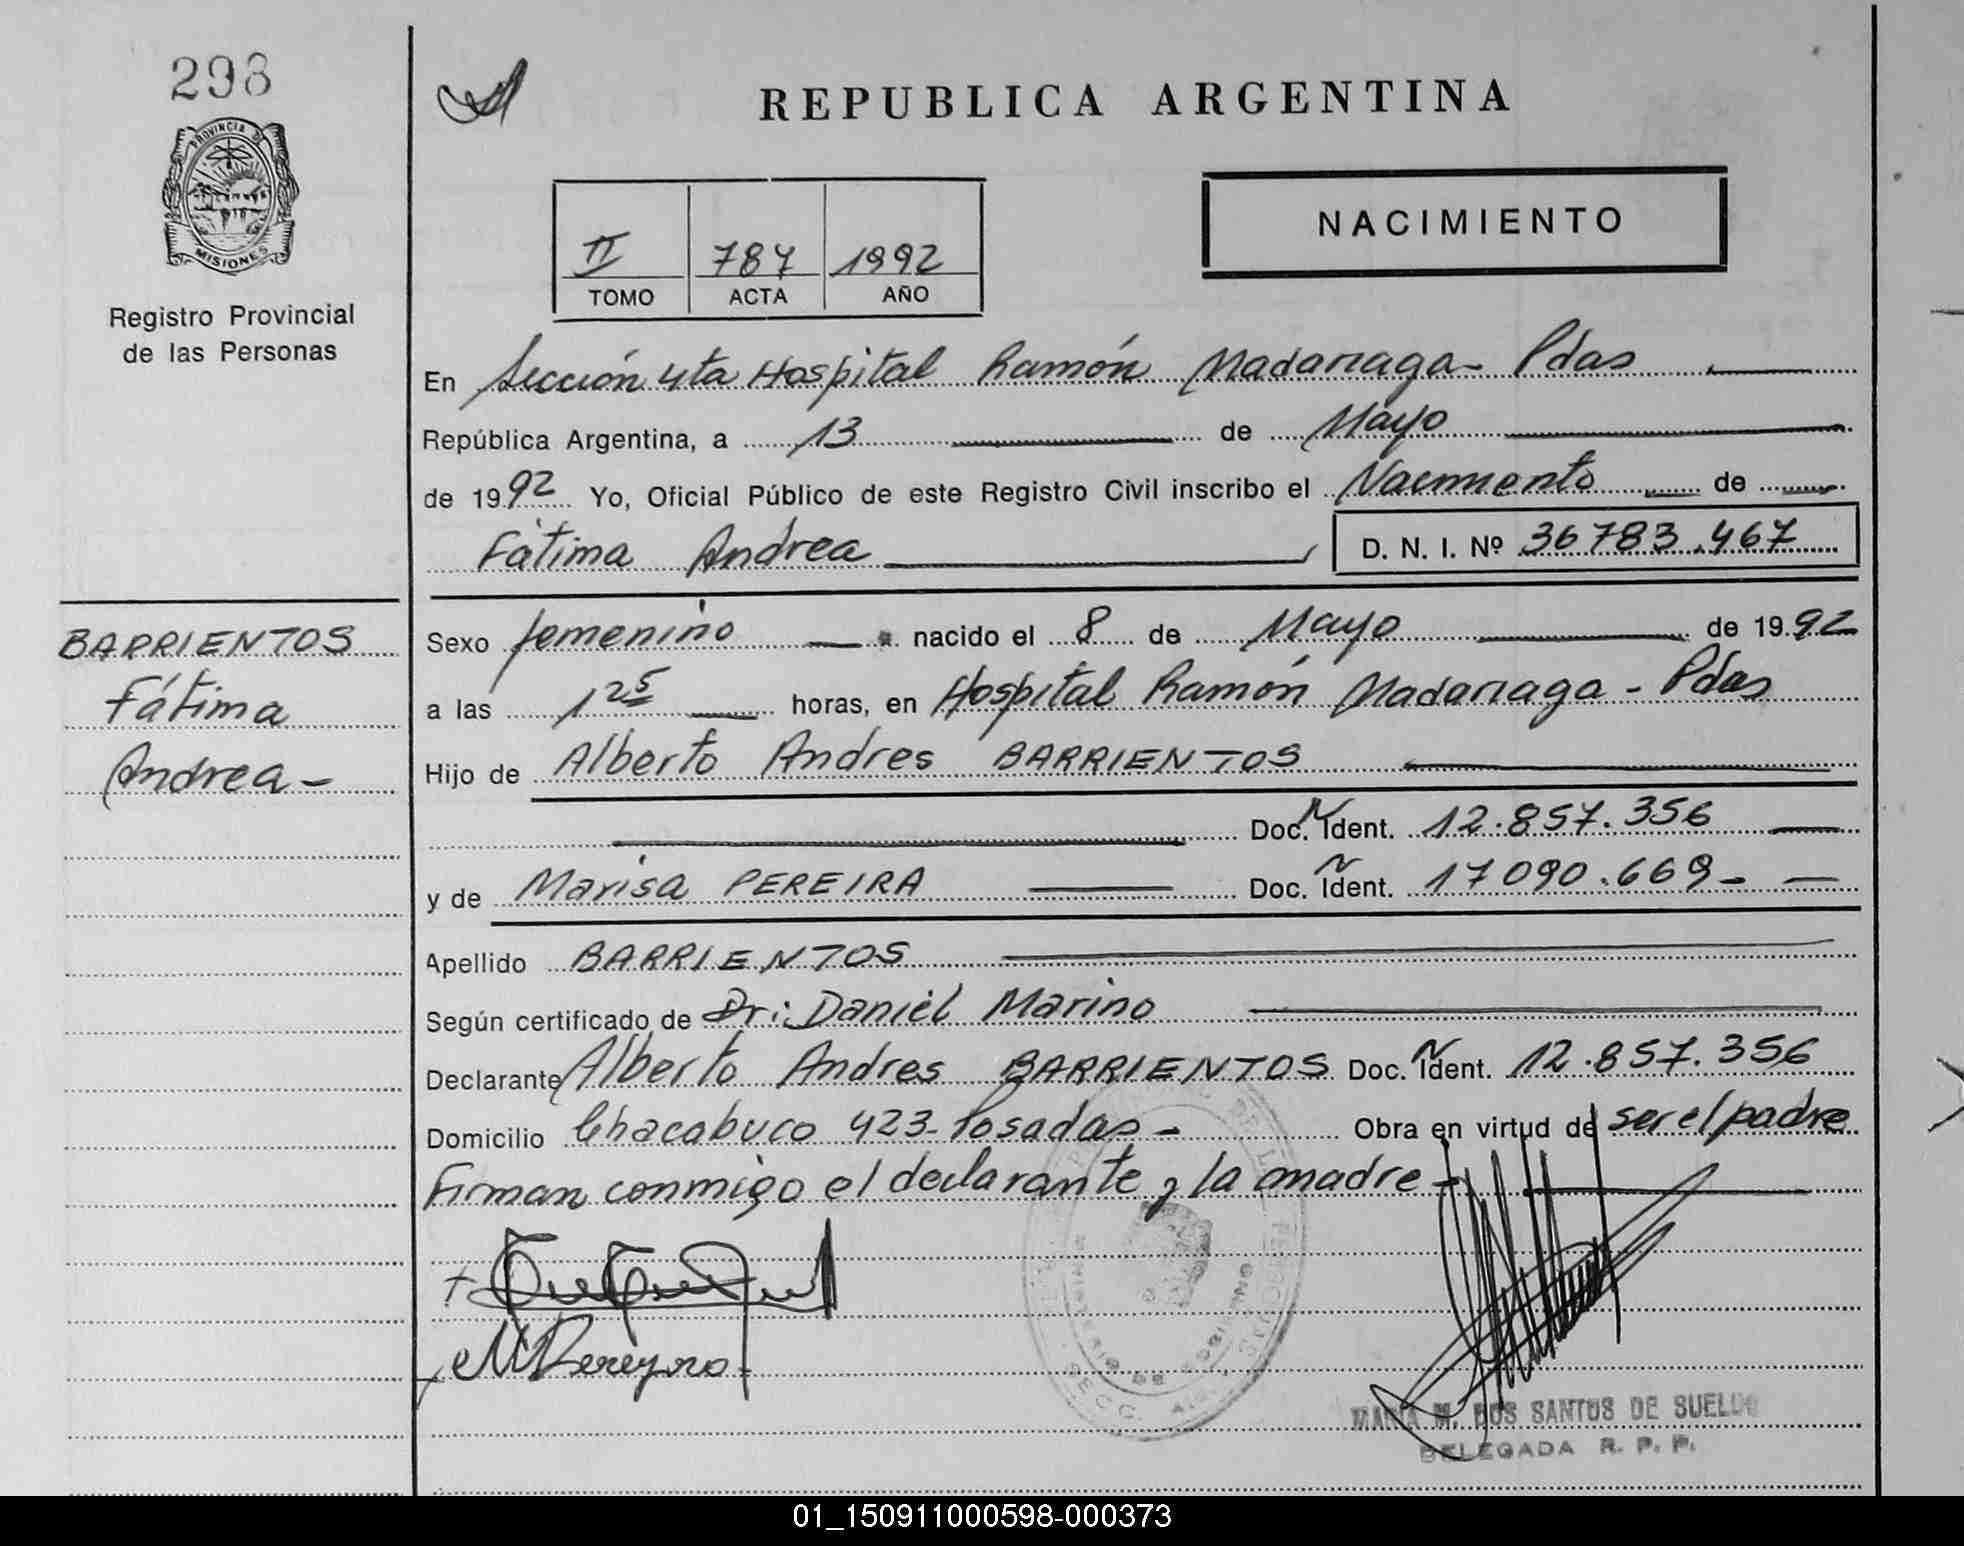 298
REPUBLICA ARGENTINA
PROVINCIA DE
MISIONES
Registro Provincial
de las Personas
II 787 1992
TOMO ACTA AÑO
NACIMIENTO
En Sección 4ta Hospital Ramón Madariaga - Pdas
República Argentina, a 13 de Mayo
de 1992 Yo, Oficial Público de este Registro Civil inscribo el Nacimiento de
Fátima Andrea D. N. I. Nº 36783.467
BARRIENTOS
Fátima
Andrea -
Sexo femenino nacido el 8 de Mayo de 1992
a las 1 25 horas, en Hospital Ramón Madariaga - Pdas
Hijo de Alberto Andres BARRIENTOS
Doc. Ident. 12.857.356
y de Marisa PEREIRA Doc. Ident. 17090.669 -
Apellido BARRIENTOS
Según certificado de Dr: Daniel Marino
Declarante Alberto Andres BARRIENTOS Doc. Ident. 12.857.356
Domicilio Chacabuco 423 - Posadas - Obra en virtud de ser el padre
Firman conmigo el declarante y la madre -
MARIA M. DOS SANTOS DE SUELDO
DELEGADA R. P. P.
01_150911000598-000373